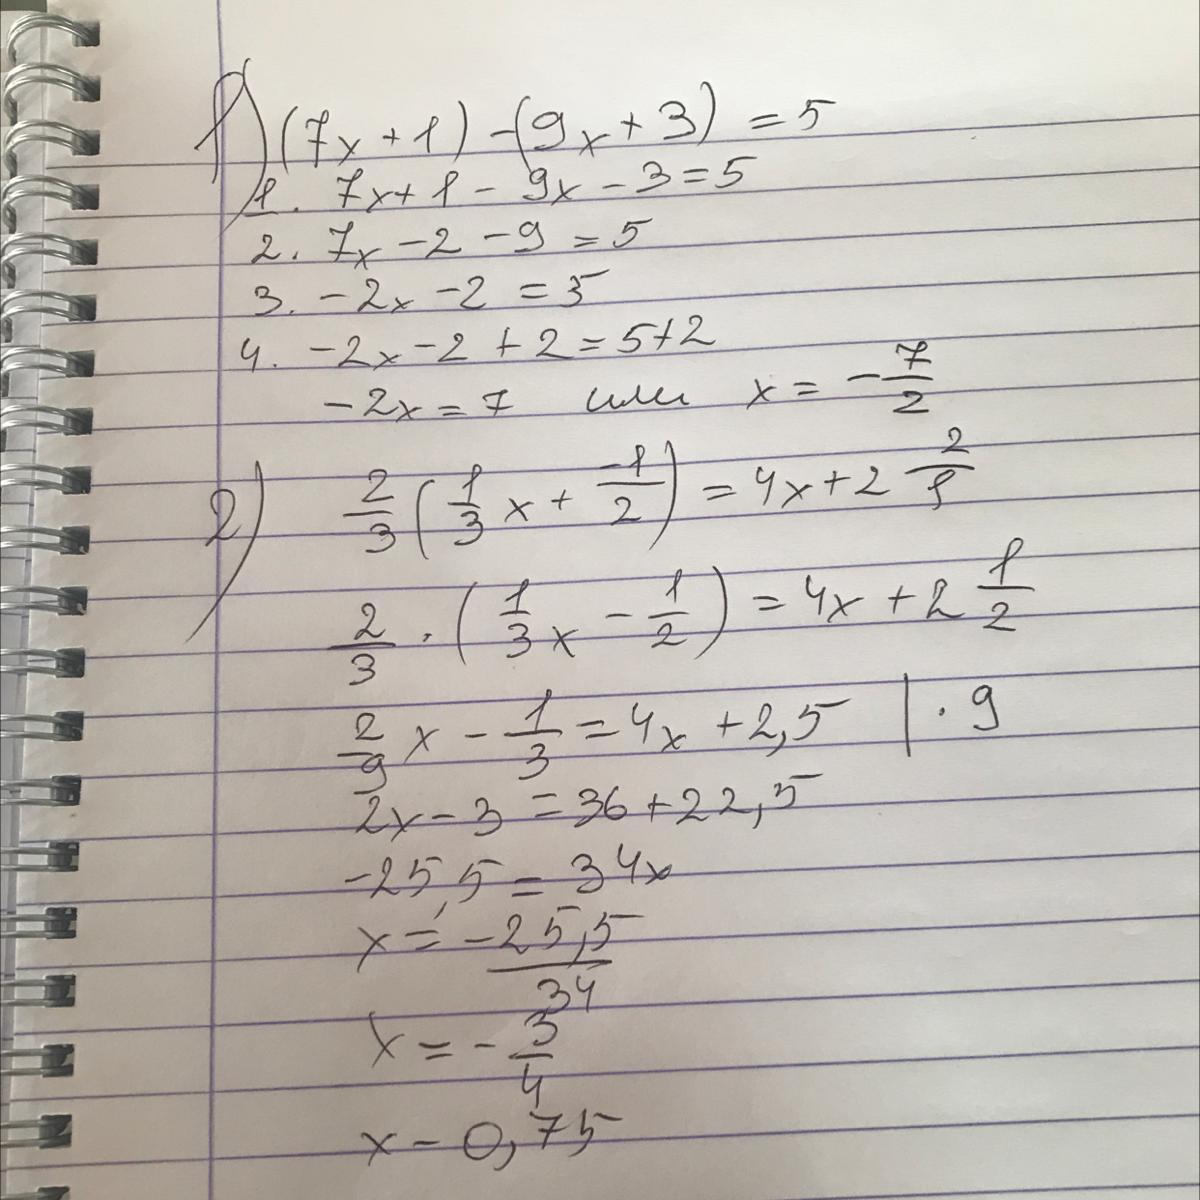 1) (7x+1)-(9x+3)=5
1. 7x+1-9x-3=5
2. 7x-2-9=5
3. -2x-2=5
4. -2x-2+2=5+2
-2x=7 или x=-7/2
2) 2/3(1/3x+-1/2)=4x+2 2/1
2/3·(1/3x-1/2)=4x+2 1/2
2/9x-1/3=4x+2,5 |·9
2x-3=36+22,5
-25,5=34x
x=-25,5/34
x=-3/4
x-0,75